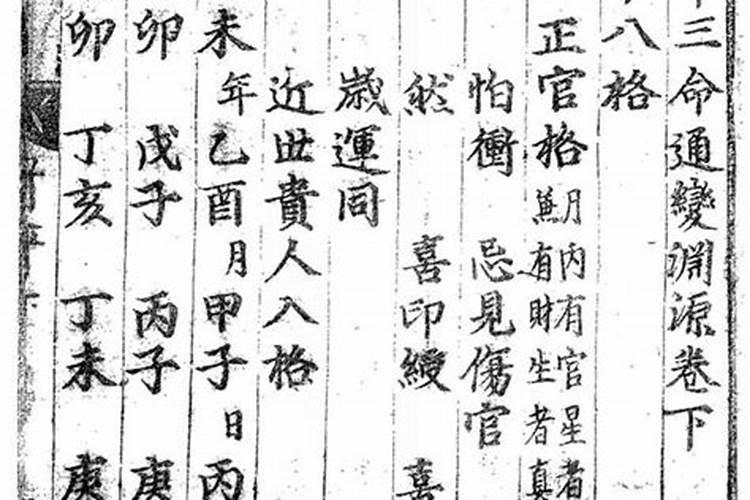 三命通變淵源卷下
八格
正官格 月內有官星者
兼有財生者真
怕衝 忌見傷官
然 喜印綬 喜
歲運同
近世貴人入格
未 年乙酉 月甲子 日丙
卯 戊子 丙子 庚
卯 丁亥 丁未 庚